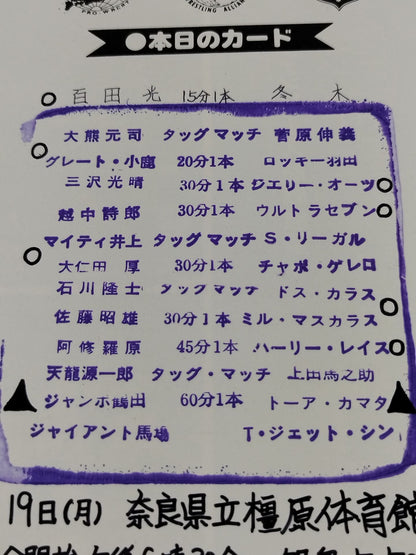 WRESTLING ALLIAN
●本日のカード
百田 光 15分1本 冬木
大熊元司 タッグマッチ 菅原伸義
グレート・小鹿 20分1本 ロッキー羽田
三沢光晴 30分1本 ジエリー・オーツ
越中詩郎 30分1本 ウルトラセブン
マイティ井上 タッグマッチ S・リーガル
大仁田 厚 30分1本 チャボ・ゲレロ
石川隆士 タッグマッチ ドス・カラス
佐藤昭雄 30分1本 ミル・マスカラス
阿修羅原 45分1本 ハーリー・レイス
天龍源一郎 タッグ・マッチ 上田馬之助
ジャンボ鶴田 60分1本 トーア・カマタ
ジャイアント馬場 T・ジェット・シン
19日(月) 奈良県立橿原体育館